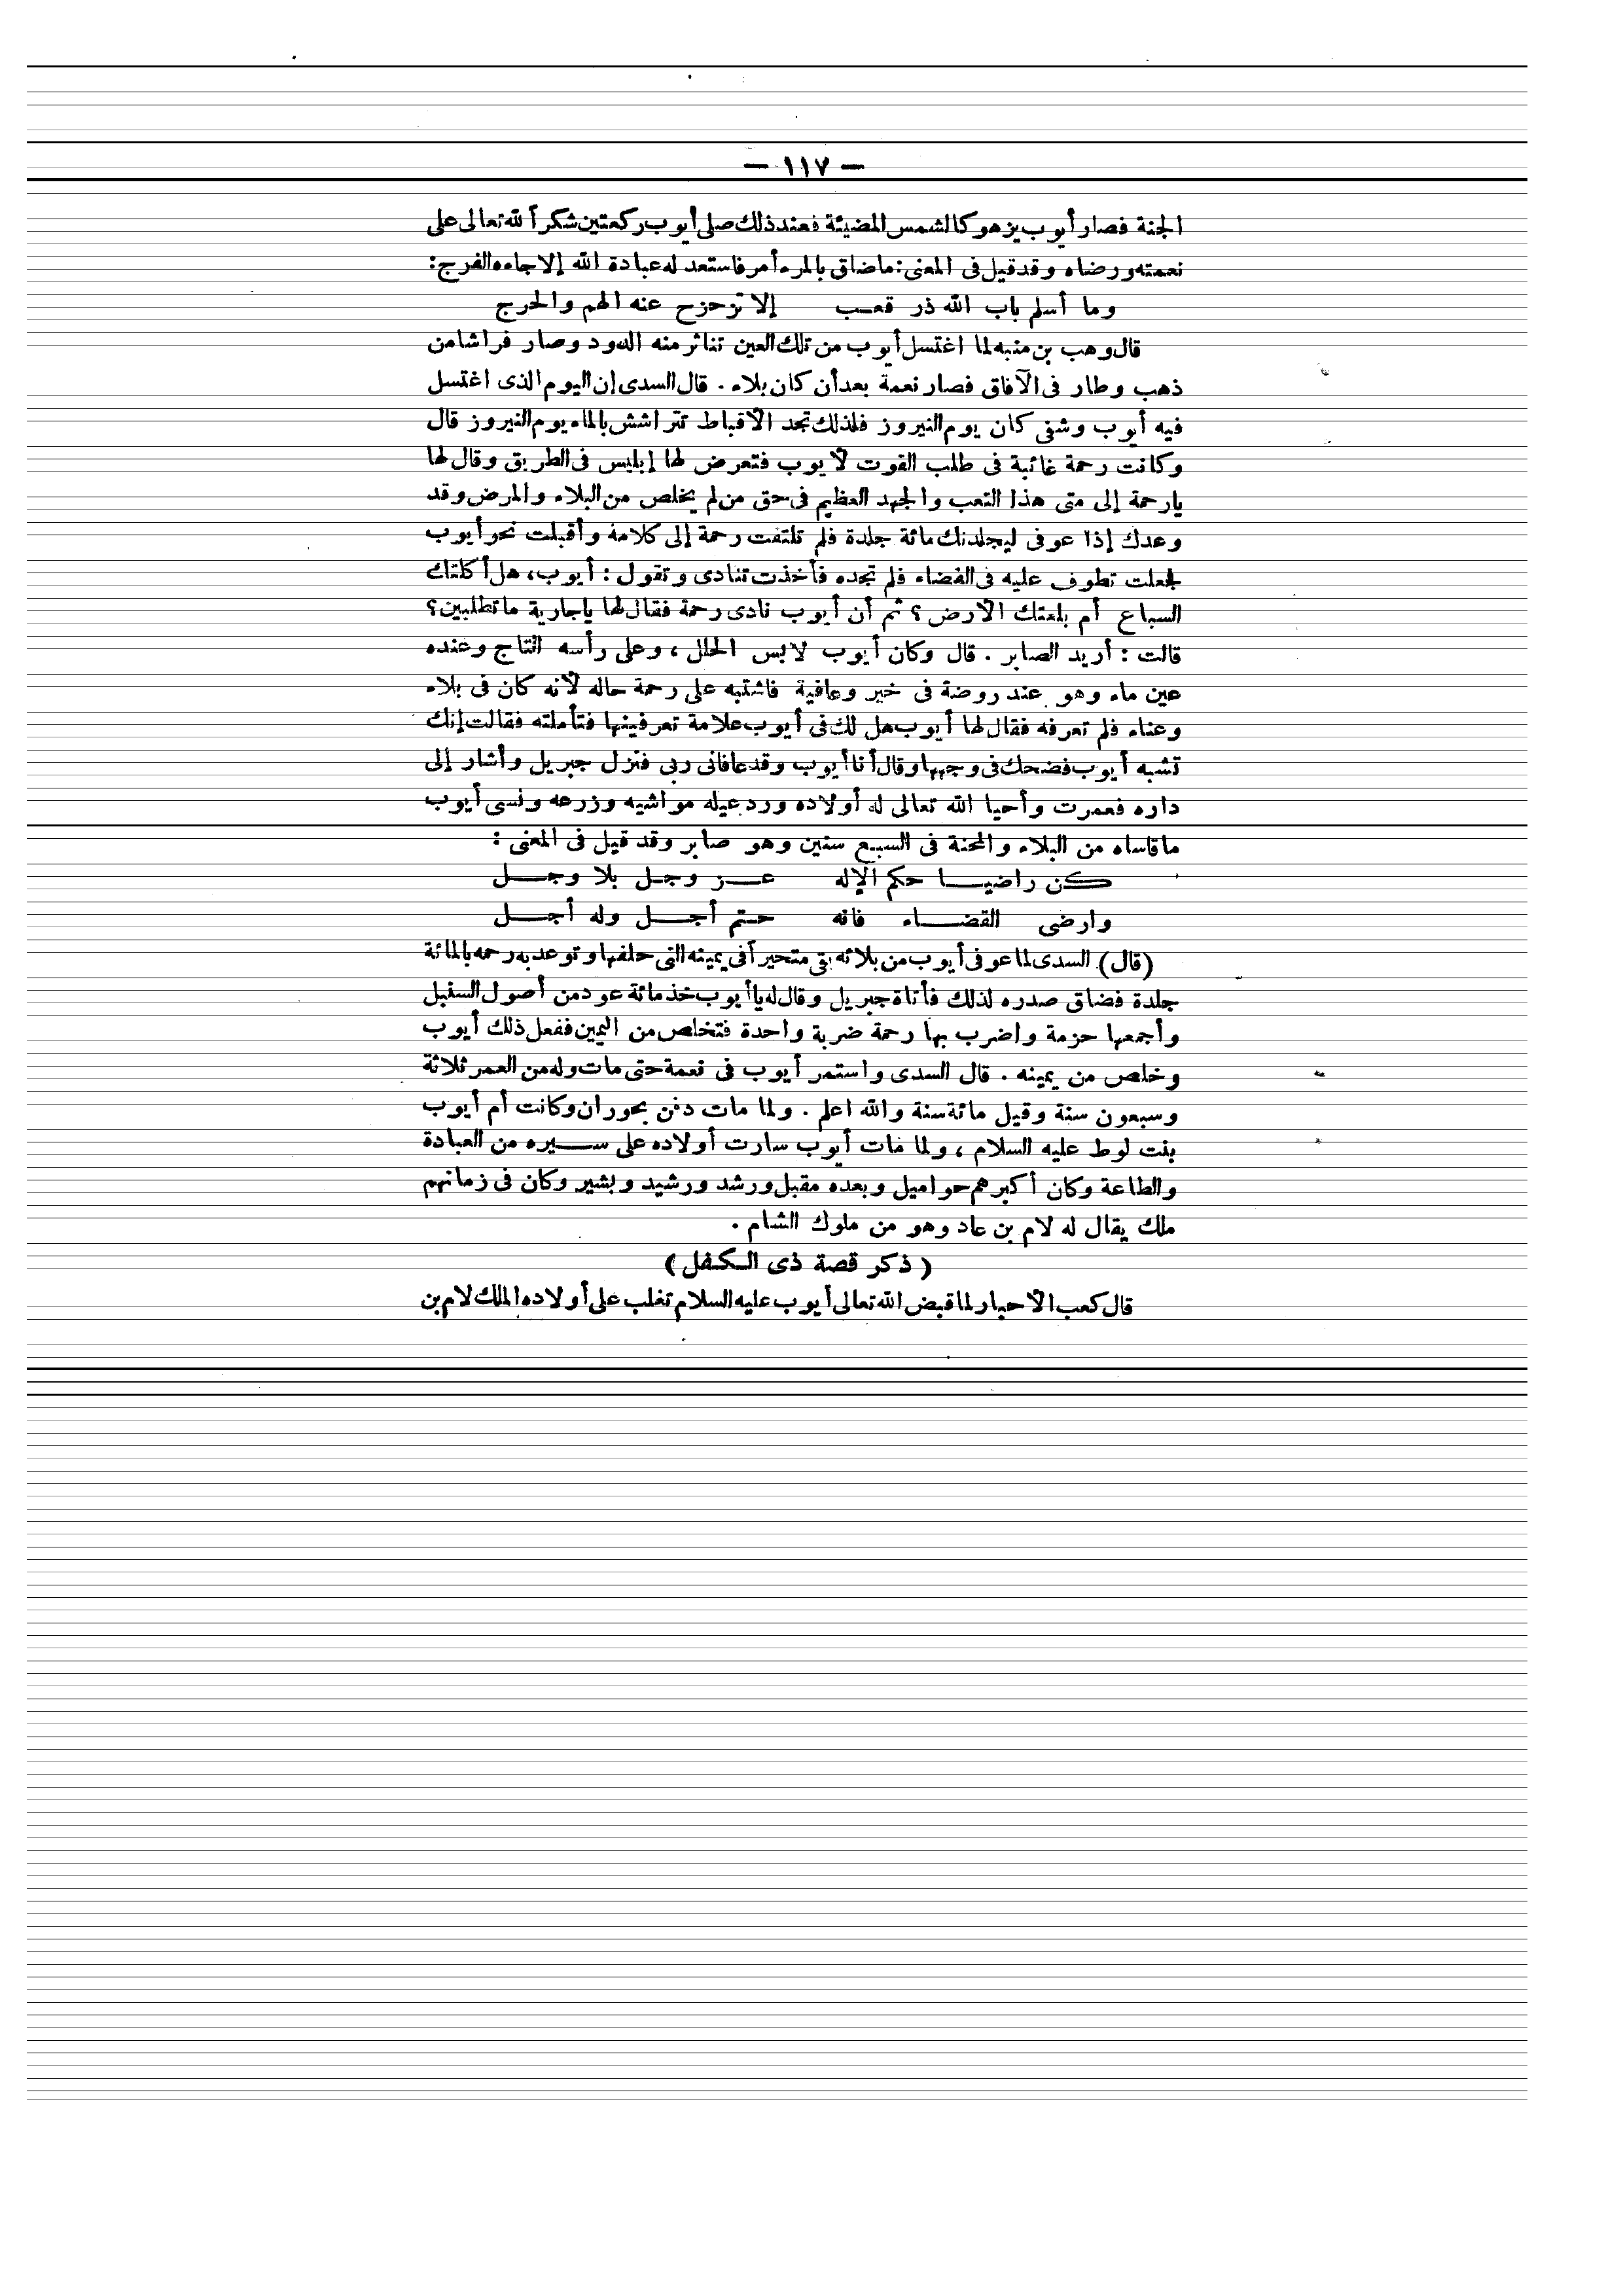 — ١١٧ —
الجنة فصار أيوب يزهو كالشمس المضيئة فعند ذلك صلى أيوب ركعتين شكراً لله تعالى على
نعمته ورضاه وقد قيل فى المعنى : ماضاق بالمرء أمر فاستعد له عبادة الله إلا جاءه الفرج :
وما أسلم باب الله ذر قعب إلا تزحزح عنه الهم والحرج
قال وهب بن منبه لما اغتسل أيوب من تلك العين تناثر منه الدود وصار فراشا من
ذهب وطار فى الآفاق فصار نعمة بعد أن كان بلاء . قال السدى إن اليوم الذى اغتسل
فيه أيوب وشفى كان يوم النيروز فلذلك تجد الأقباط تتراشش بالماء يوم النيروز قال
وكانت رحمة غائبة فى طلب القوت لأيوب فتعرض لها إبليس فى الطريق وقال لها
يارحمة إلى متى هذا التعب والجهد العظيم فى حق من لم يخلص من البلاء والمرض وقد
وعدك إذا عوفى ليجلدنك مائة جلدة فلم تلتفت رحمة إلى كلامة وأقبلت نحو أيوب
لجعلت تطوف عليه فى الفضاء فلم تجده فأخذت تنادى وتقول : أيوب، هل أكلتك
السباع أم بلعتك الأرض ؟ ثم أن أيوب نادى رحمة فقال لها ياجارية ماتطلبين ؟
قالت : أريد الصابر . قال وكان أيوب لابس الحلل ، وعلى رأسه التاج وعنده
عين ماء وهو عند روضة فى خير وعافية فاشتبه على رحمة حاله لأنه كان فى بلاء
وعناء فلم تعرفه فقال لها أيوب هل لك فى أيوب علامة تعرفينها فتأملته فقالت إنك
تشبه أيوب فضحك فى وجهها وقال أنا أيوب وقد عافانى ربى فنزل جبريل وأشار إلى
داره فعمرت وأحيا الله تعالى له أولاده ورد عيله مواشيه وزرعه ونسى أيوب
ماقاساه من البلاء والمحنة فى السبع سنين وهو صابر وقد قيل فى المعنى :
كن راضيـا حكم الإله عـز وجل بلا وجـل
وارضى القضـاء فانه حتم أجـل وله أجـل
(قال) السدى لما عوفى أيوب من بلائه بقى متحيراً فى يمينه التى حلفها وتوعد به رحمه بالمائة
جلدة فضاق صدره لذلك فأتاة جبريل وقال له ياأيوب خذ مائة عود من أصول السنبل
وأجمعها حزمة واضرب بها رحمة ضربة واحدة فتخلص من اليمين ففعل ذلك أيوب
وخلص من يمينه . قال السدى واستمر أيوب فى نعمة حتى مات وله من العمر ثلاثة
وسبعون سنة وقيل مائة سنة والله اعلم . ولما مات دفن بحوران وكانت أم أيوب
بنت لوط عليه السلام ، ولما مات أيوب سارت أولاده على سـيره من العبادة
والطاعة وكان أكبرهم حواميل وبعده مقبل ورشد ورشيد وبشير وكان فى زمانهم
ملك يقال له لام بن عاد وهو من ملوك الشام .
( ذكر قصة ذى الـكفل )
قال كعب الأحبار لما قبض الله تعالى أيوب عليه السلام تغلب على أولاده الملك لام بن